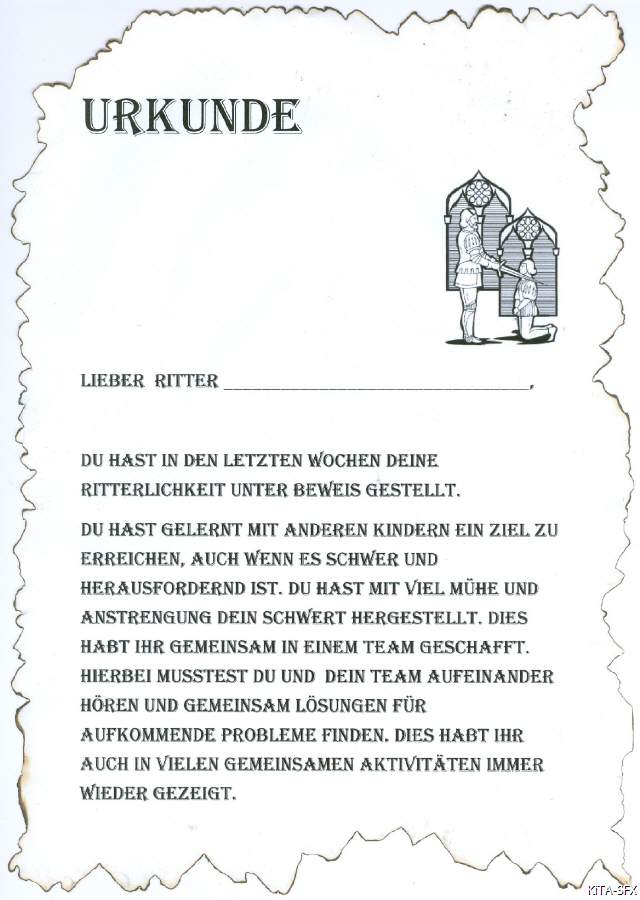 URKUNDE
LIEBER RITTER ________________________________,
DU HAST IN DEN LETZTEN WOCHEN DEINE
RITTERLICHKEIT UNTER BEWEIS GESTELLT.
DU HAST GELERNT MIT ANDEREN KINDERN EIN ZIEL ZU
ERREICHEN, AUCH WENN ES SCHWER UND
HERAUSFORDERND IST. DU HAST MIT VIEL MÜHE UND
ANSTRENGUNG DEIN SCHWERT HERGESTELLT. DIES
HABT IHR GEMEINSAM IN EINEM TEAM GESCHAFFT.
HIERBEI MUSSTEST DU UND DEIN TEAM AUFEINANDER
HÖREN UND GEMEINSAM LÖSUNGEN FÜR
AUFKOMMENDE PROBLEME FINDEN. DIES HABT IHR
AUCH IN VIELEN GEMEINSAMEN AKTIVITÄTEN IMMER
WIEDER GEZEIGT.
KITA-SFX